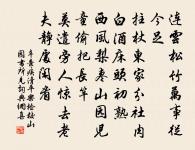 連雲松竹萬事從
今足
拄杖東家分社肉
白酒床頭初熟
西風梨棗山園兒
童偷把長竿
莫遣旁人驚去老
夫靜處閑看
辛棄疾清平樂檢校山
園書所見詞